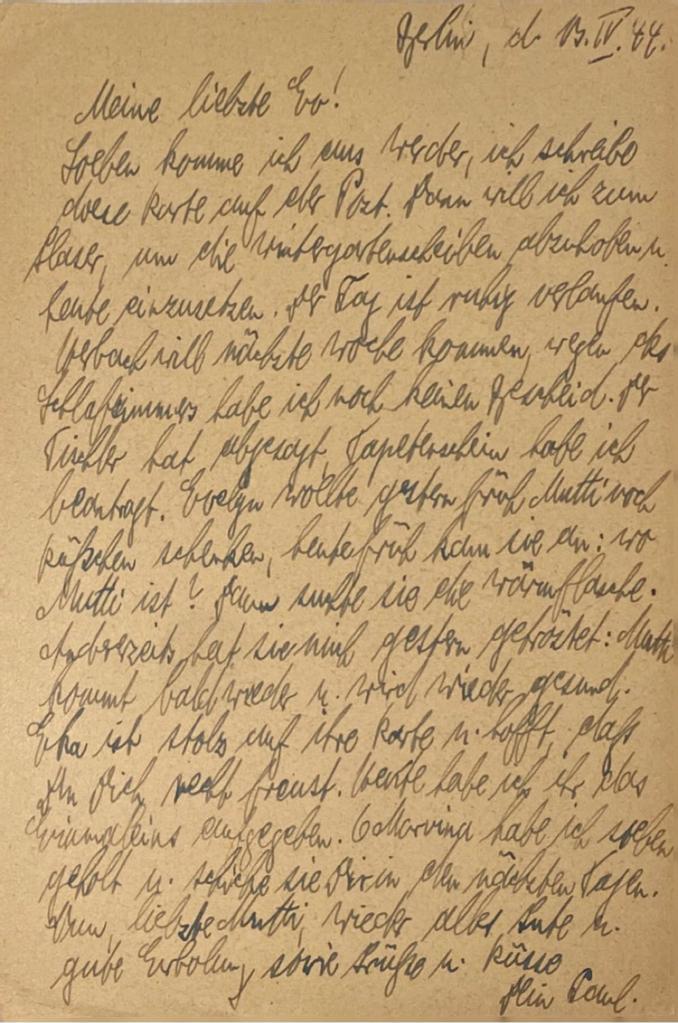 Berlin, d. 13.IV.44.
Meine liebste Ev!
Soeben komme ich aus Werder, ich schreibe
diese Karte auf der Post. Dann will ich zum
Glaser, um die Wintergartenscheiben abzuholen u.
heute einzusetzen. Der Tag ist ruhig verlaufen.
will nächste Woche kommen, wegen des
Schlafzimmers habe ich noch keinen Bescheid. Der
Tischler hat abgesagt, Tapetenschein habe ich
beantragt. Evelyn wollte gestern früh Mutti noch
Küßchen schenken, heute früh kam sie an: wo
Mutti ist? Dann suchte sie die Wärmflasche.
Andrerseits hat sie mich getröstet: Mutti
kommt bald wieder u. wird wieder gesund.
ist stolz auf ihre Karte u. hofft, daß
Du Dich recht freust. Heute habe ich ihr das
Einmaleins aufgegeben. 6 habe ich soeben
geholt u. schicke sie Dir in den nächsten Tagen.
Nun, liebste Mutti, wieder alles Gute u.
gute Erholung, sowie Grüße u. Küsse
Dein Paul.